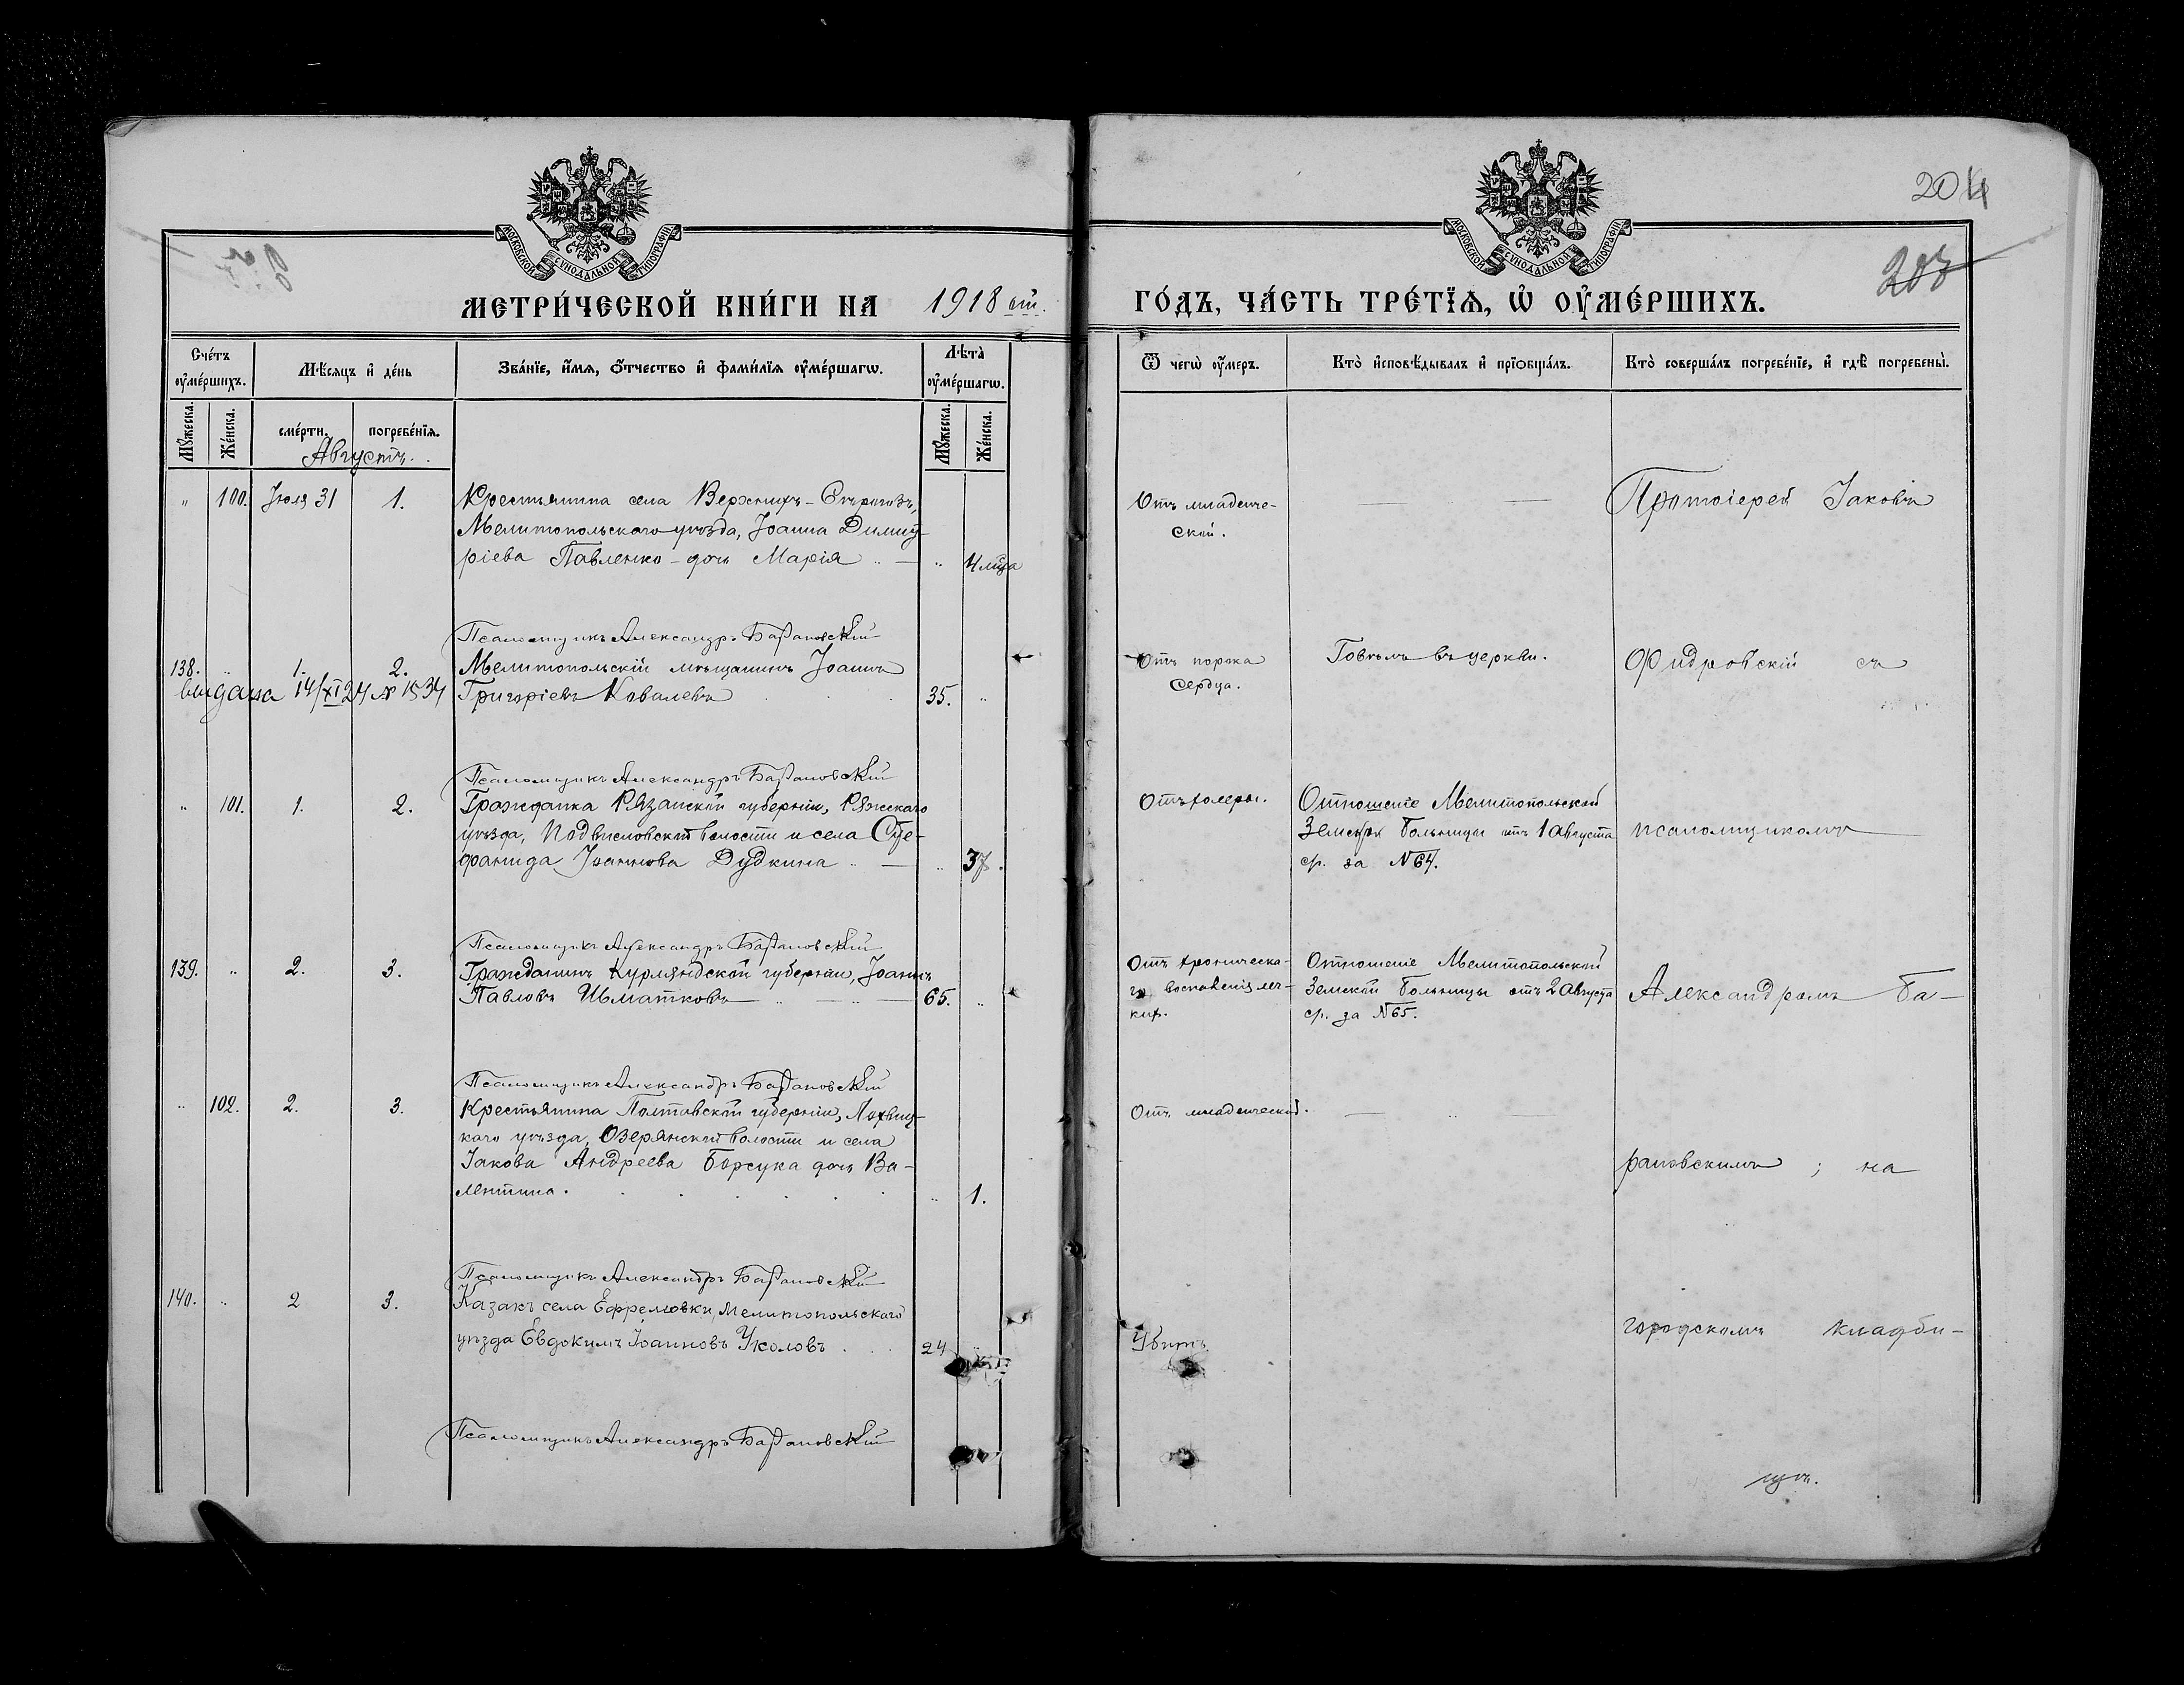 204
203
МОСКОВСКОЙ СѴНОДАЛЬНОЙ ТИПОГРАФІИ
МОСКОВСКОЙ СѴНОДАЛЬНОЙ ТИПОГРАФІИ
МЕТРИ́ЧЕСКОЙ КНИ́ГИ НА 1918 ый. ГО́ДЪ, ЧА́СТЬ ТРЕ́ТЇѦ, Ѡ҆ ОУ҆МЕ́РШИХЪ.
Сче́тъ оу҆ме́ршихъ.
Мѣ́сяцъ и҆ де́нь
Зва́нїе, и҆́мѧ, о҆́тчество и҆ фами́лїѧ оу҆ме́ршагѡ.
Лѣ́та оу҆ме́ршагѡ.
Ѿ чегѡ̀ оу҆́меръ.
Кто̀ и҆сповѣ́дывалъ и҆ прїѡбща́лъ.
Кто̀ соверша́лъ погребе́нїе, и҆ гдѣ̀ погребены̀.
Мꙋ́жеска.
Же́нска.
сме́рти.
погребе́нїѧ.
Мꙋ́жеска.
Же́нска.
Августъ.
" 100. Іюля 31 1. Крестьянина села Верхнихъ-Сѣрогозъ,
Мелитопольскаго уѣзда, Іоанна Димит-
ріева Павленко - дочь Марія " — " 4 мѣсяца
Отъ младенче-
ской.
Протоіерей Іаковъ
Псаломщикъ Александръ Барановскій
138. " 1. 2. Мелитопольскій мѣщанинъ Іоаннъ
выдана 14/XI 24 № 1534 Григоріевъ Ковалевъ 35. "
Отъ порока
сердца.
Говѣлъ въ церкви.
Фидровскій съ
Псаломщикъ Александръ Барановскій
" 101. 1. 2. Гражданка Рязанской губерніи, Ряжскаго
уѣзда, Подвисловской волости и села Сте-
фанида Іоаннова Дудкина " — " 37.
Отъ холеры.
Отношеніе Мелитопольской
Земской больницы отъ 1 августа
ср. за №64.
псаломщикомъ
Псаломщикъ Александръ Барановскій
139. " 2. 3. Гражданинъ Курляндской губерніи, Іоаннъ
Павловъ Шматковъ — " — " 65. "
Отъ хроническа-
го воспаленія лег-
ких.
Отношеніе Мелитопольской
Земской больницы отъ 2 августа
ср. за №65.
Александромъ Ба-
Псаломщикъ Александръ Барановскій
" 102. 2. 3. Крестьянина Полтавской губерніи, Лохвиц-
каго уѣзда, Озерянской волости и села
Іакова Андреева Борсука дочь Ва-
лентина. " 1.
Отъ младенческой.
рановскимъ; на
Псаломщикъ Александръ Барановскій
140. " 2 3. Казакъ села Ефремовки, Мелитопольскаго
уѣзда Евдокимъ Іоанновъ Уколовъ 24
Убитъ.
городскомъ кладби-
Псаломщикъ Александръ Барановскій
щѣ.